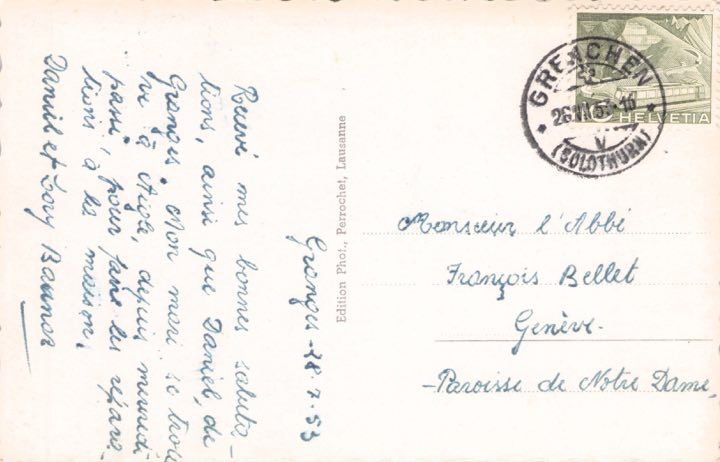 Granges - 28.7.53
Recevé mes bonnes saluta-
tions, ainsi que Daniel, de
Granges. Mon mari se trou
ve à Aigle, depuis mercredi
passé, pour faire les répara-
tions, à la maison.
Daniel et
Edition Phot., Perrochet, Lausanne
GRENCHEN
(SOLOTHURN)
V
HELVETIA
Monsieur l'Abbé
François Bellet
Genève.
-Paroisse de Notre Dame